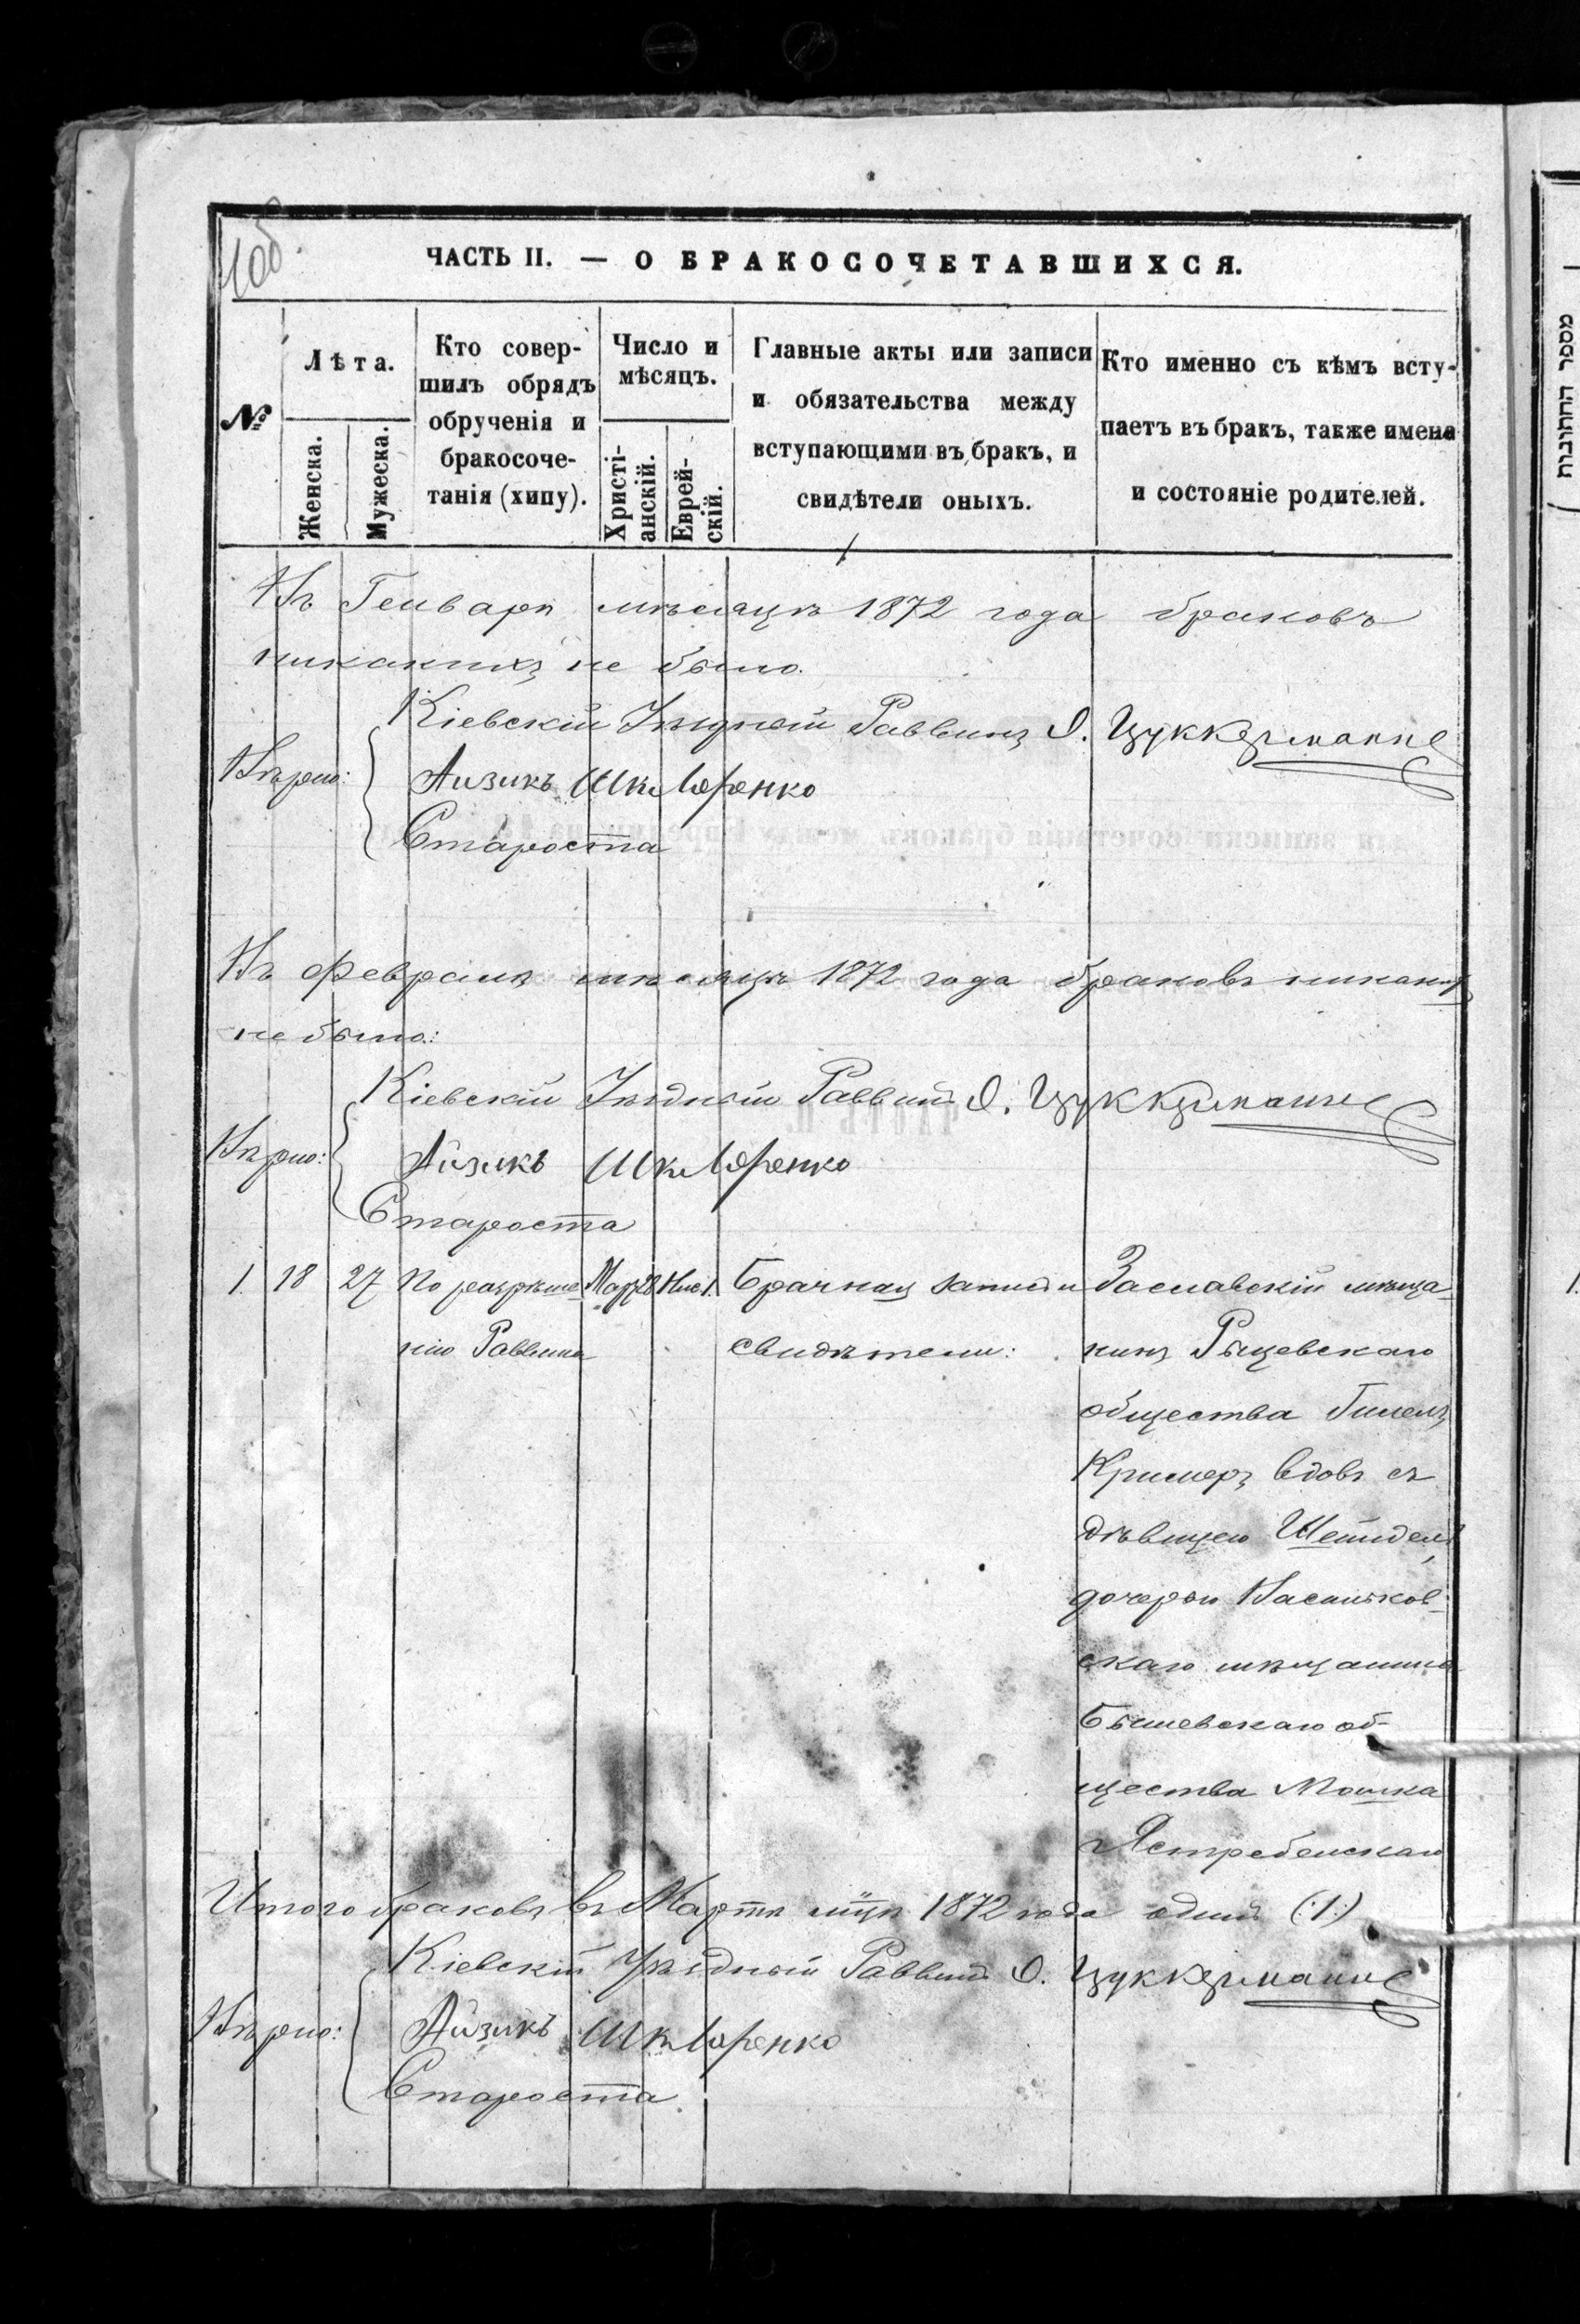 1об.
ЧАСТЬ II. — О БРАКОСОЧЕТАВШИХСЯ.
№
Лѣта.
Женска.
Мужеска.
Кто совер-
шилъ обрядъ
обрученія и
бракосоче-
танія (хипу).
Число и
мѣсяцъ.
Христі-
анскій.
Еврей-
скій.
Главные акты или записи
и обязательства между
вступающими въ бракъ, и
свидѣтели оныхъ.
Кто именно съ кѣмъ всту-
паетъ въ бракъ, также имена
и состояніе родителей.
מספר החתונות
Въ Генварѣ мѣсяцѣ 1872 года браковъ
никакихъ не было.
Кіевскій Уѣздный Раввинъ О. Цуккерманъ
Вѣрно:
Айзикъ Шкляренко
Староста
Въ Февралѣ мѣсяцѣ 1872 года браковъ никакихъ
не было:
Кіевскій Уѣздный Раввинъ О. Цуккерманъ
Вѣрно:
Айзикъ Шкляренко
Староста
1. 18 27 По разрѣше- Мар. 28 Нис. 1. Брачная запись и Заславскій мѣща-
нію Раввина свидѣтели: нинъ
общества
Кримеръ вдовъ съ
дѣвицею Шейндель
дочерью Васильков-
скаго мѣщанина
Бышевскаго об-
щества Мошка
Ястребенскаго
Итого браковъ въ Мартѣ мцѣ 1872 года одинъ (:1:)
Кіевскій Уѣздный Раввинъ О. Цуккерманъ
Вѣрно:
Айзикъ Шкляренко
Староста